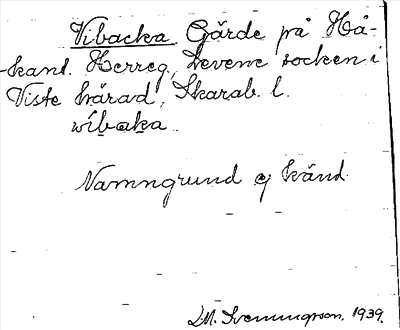 Vibacka. Gärde på Hå-
kans. Herreg., Levene socken i
Viste härad, Skarab. l.
wíbaka.
Namngrund ej känd.
L.M. Svenungsson. 1939.